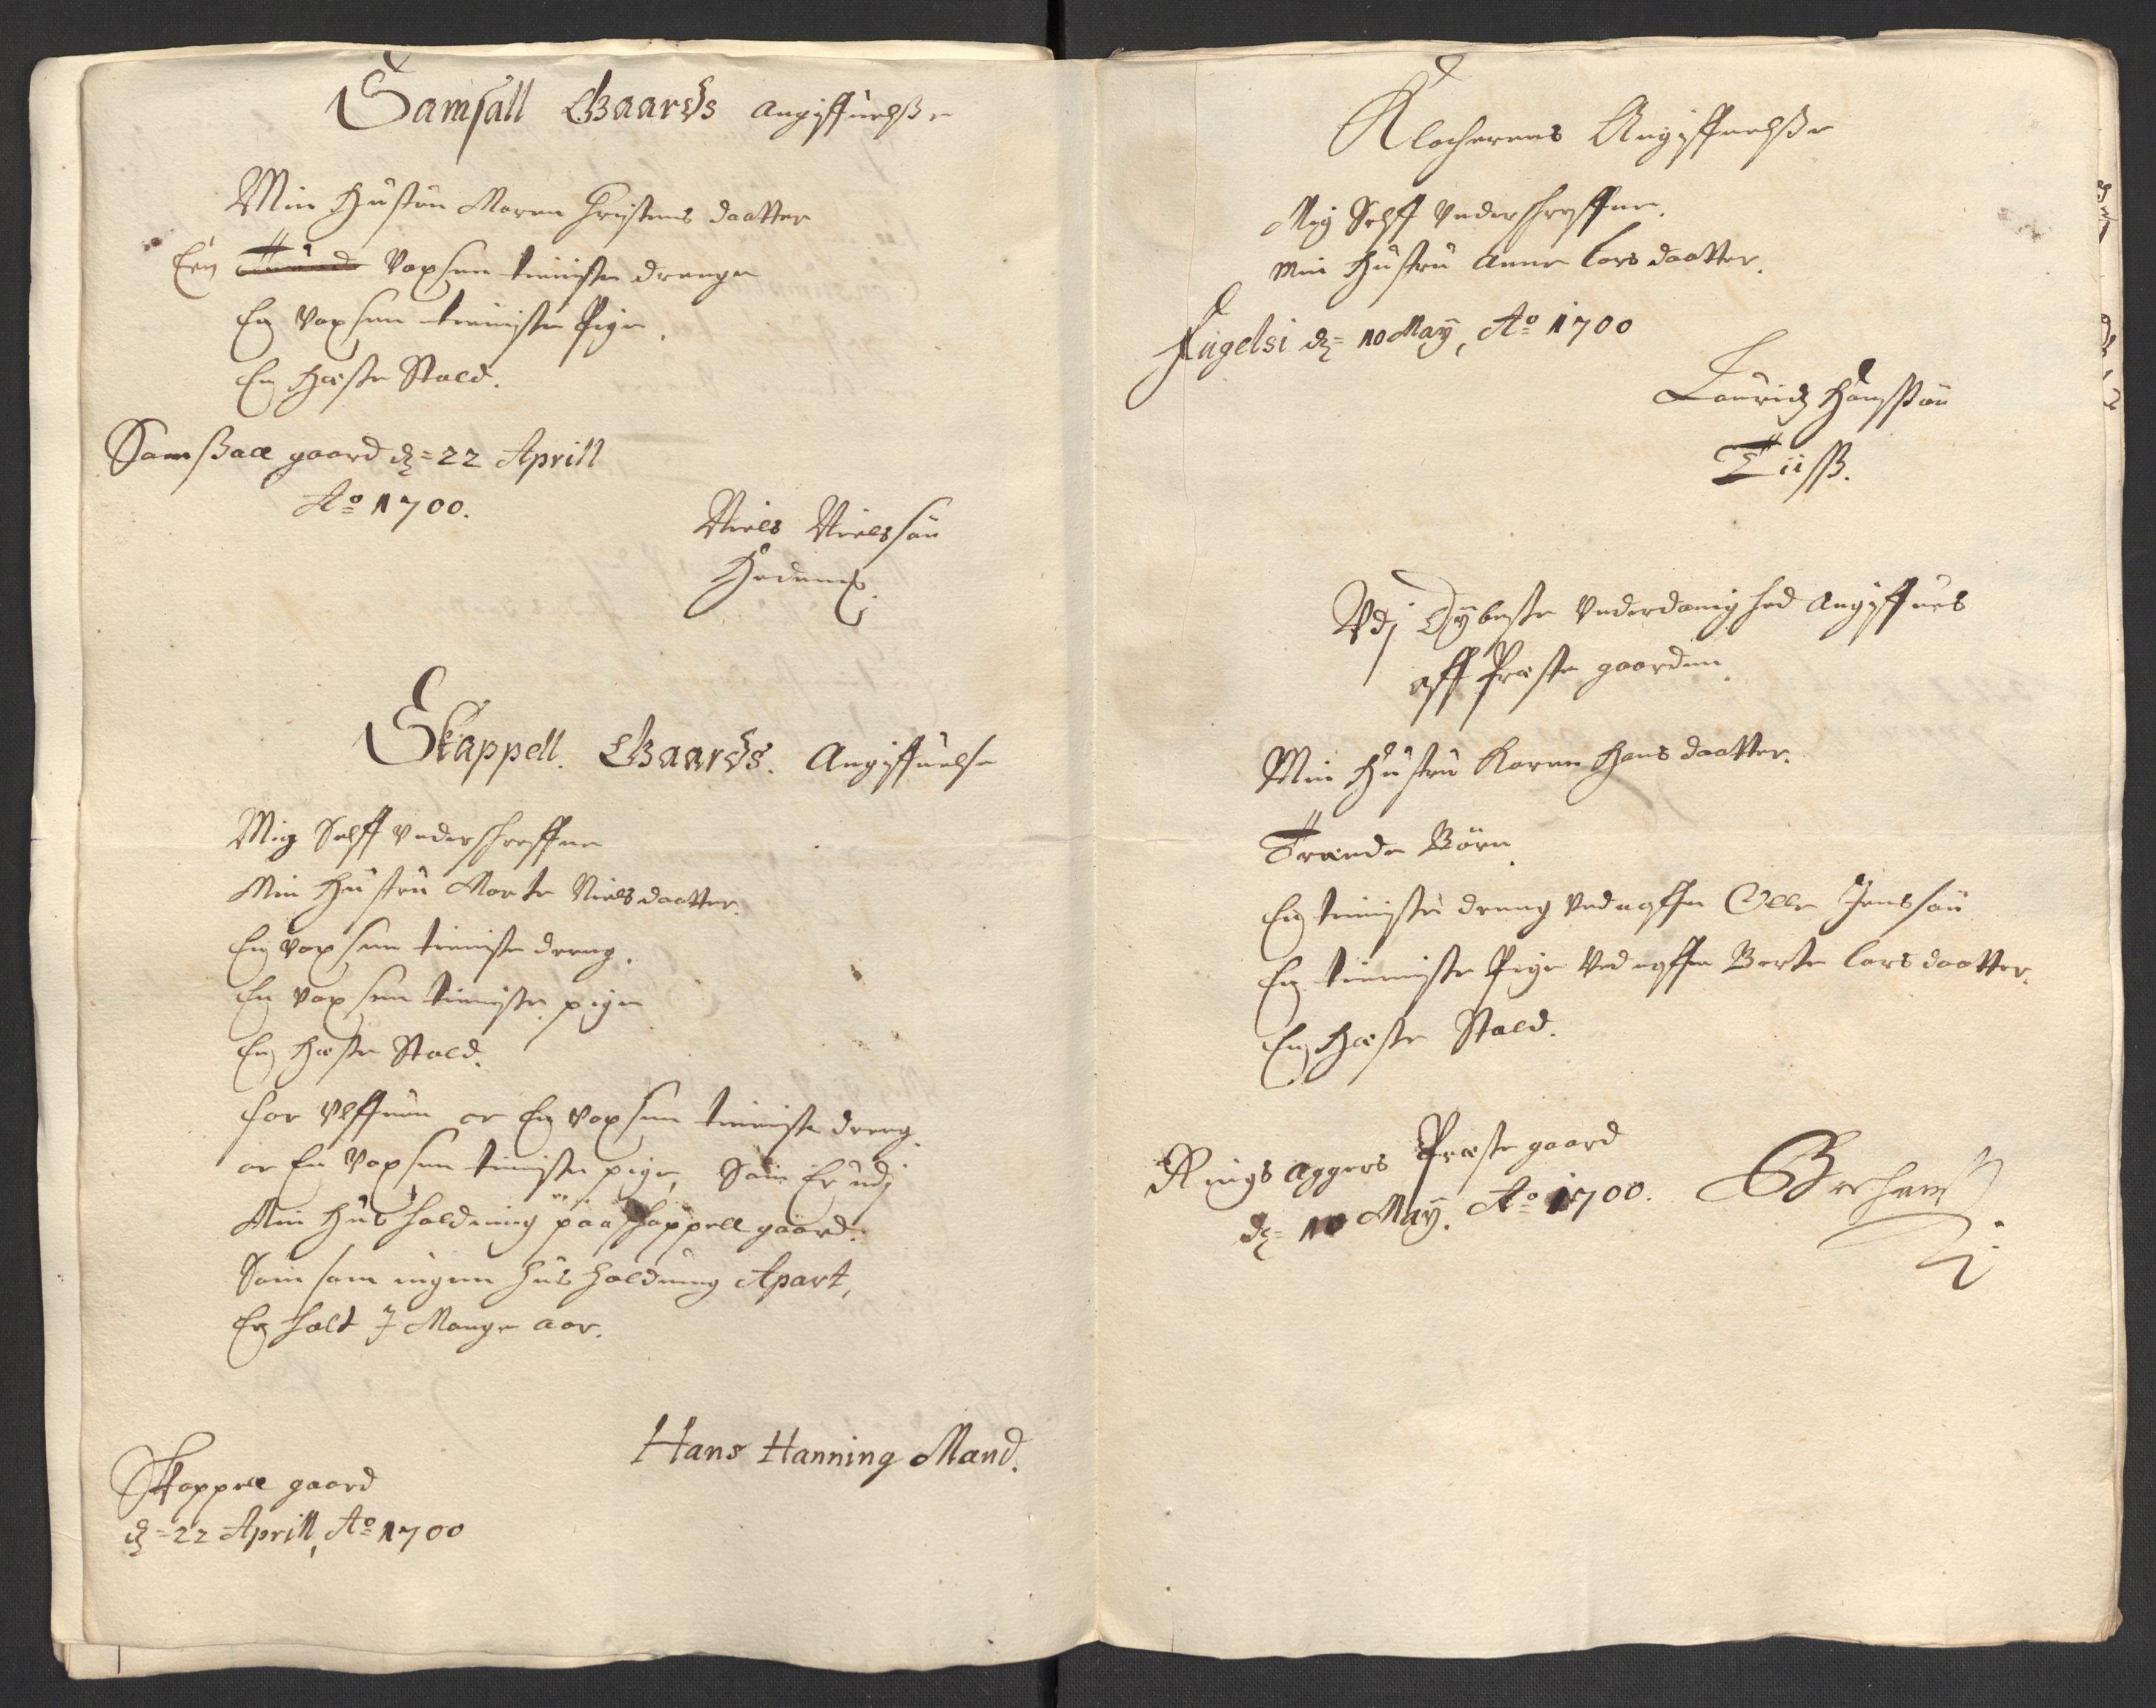 Samsall Gaards angiffuelsse
Min Hustru Maren Christens daatter
Een voxsen tieniste drenge
En voxsen tieniste Pige.
En Hæste Stald.
Samssall gaard dₑ = 22 Aprill
Ao 1700.
Niels Nielssøn
Skappell. Gaards. Angiffuelse
Mig Selff underschreffne
Min Hustru Marte Niels daatter.
En voxsen tieniste dreng.
En voxsen tieniste pige
En Hæste Stald.
for Ulffuen er En voxsen tieniste dreng.
er En voxsen tieniste pige, Som Er udj
Min Huusholdning paa schappell gaard.
Som som ingen huusholdning Apart,
Er holt J Mange aar.
Hans Hanning Mand.
Skappell gaard
d = 22 Aprill, Ao 1700
Klocherens Angiffuelsse
Mig Selff underschreffne.
Min Hustru Anne Lars daatter.
Fugelsi d = 10 May, Ao 1700
Lauridz Hanssøn
Udj Dybeste underdanighed angiffues
aff Præste gaarden.
Min Hustru Karen Hans daatter.
Trende Børn
En tieniste dreng ved naffn Olle Jenssøn
En tieniste Pige ved naffn Berte Lars daatter.
En Hæste Stald.
Rings aggers Præste gaard
d = 10 May. Ao 1700.